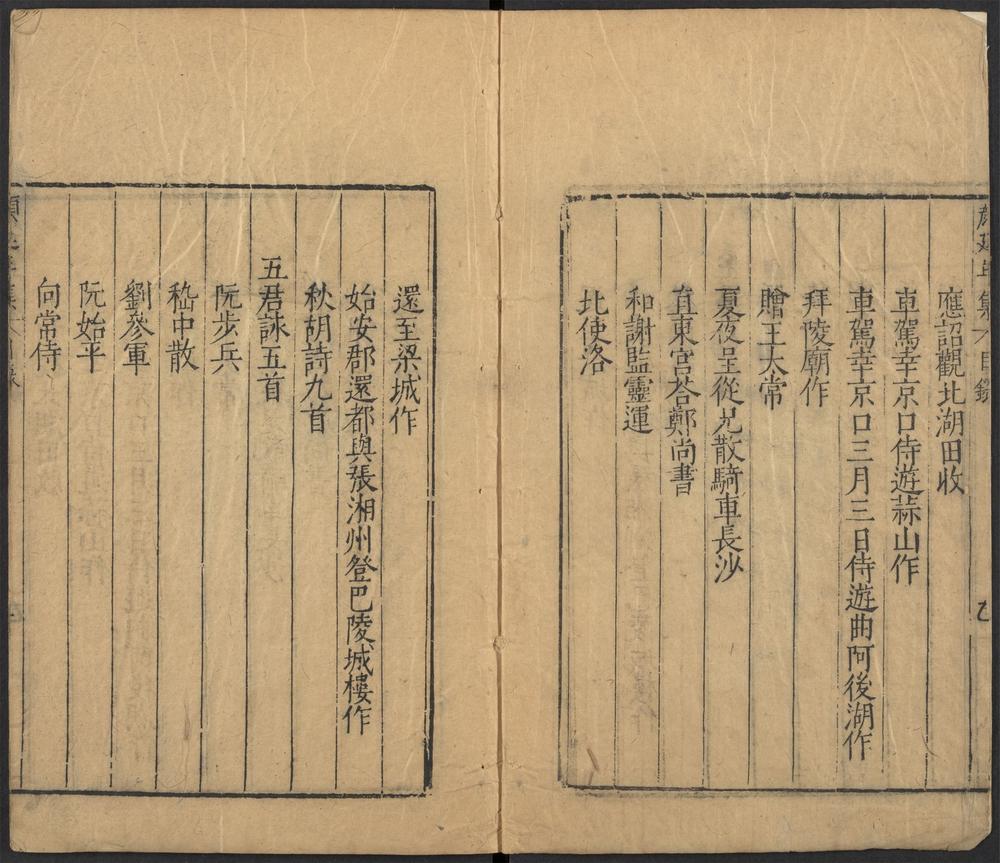 顏延年集八目錄
應詔觀北湖田收
車駕幸京口侍遊蒜山作
車駕幸京口三月三日侍遊曲阿後湖作
拜陵廟作
贈王太常
夏夜呈從兄散騎車長沙
直東宮荅鄭尚書
和謝監靈運
北使洛
還至梁城作
始安郡還都與張湘州登巴陵城樓作
秋胡詩九首
五君詠五首
阮步兵
嵇中散
劉參軍
阮始平
向常侍